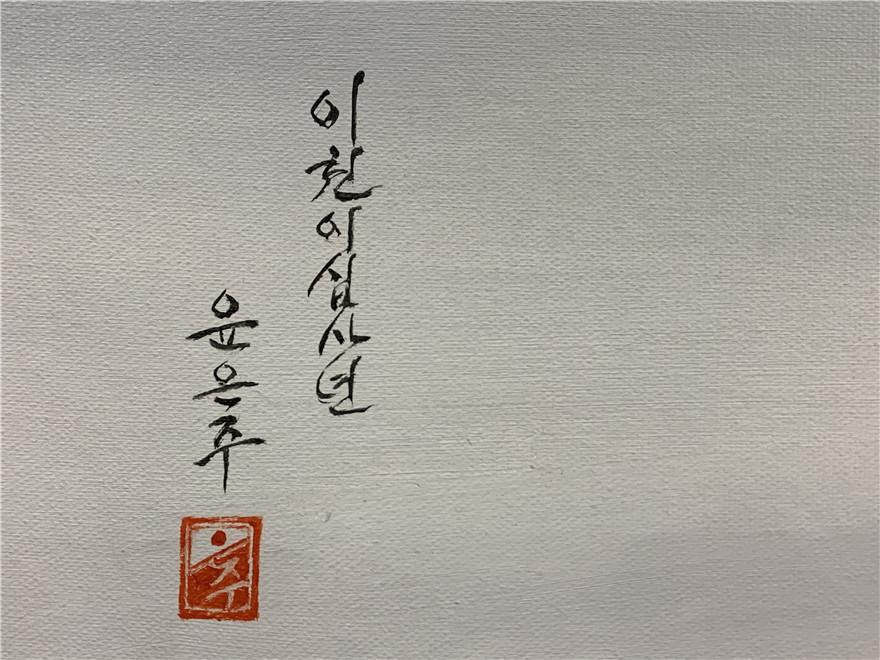 이천이십사년
윤은주
주